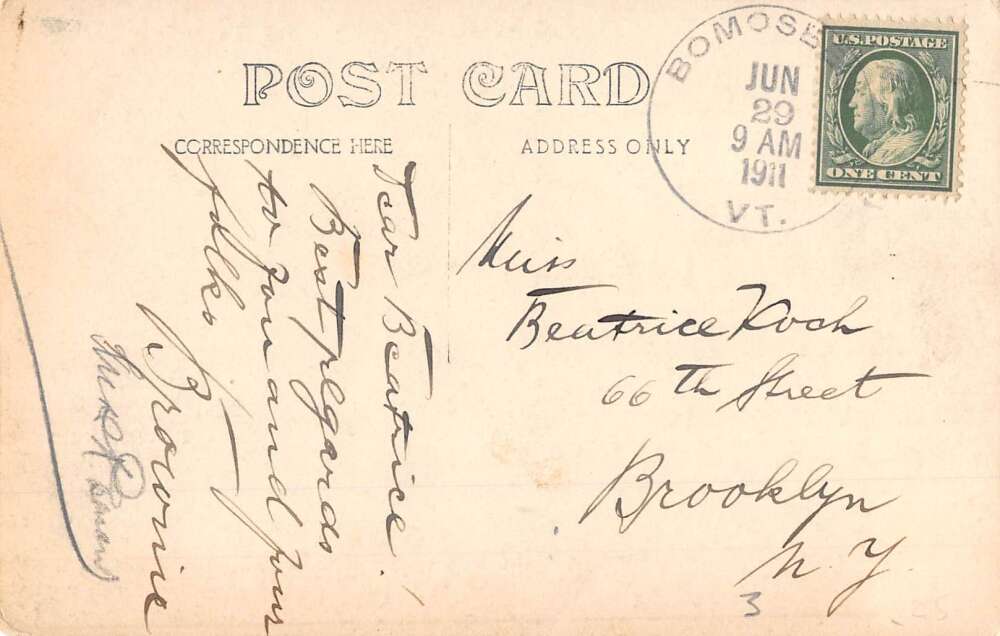 POST CARD
CORRESPONDENCE HERE
ADDRESS ONLY
BOMOSE
JUN
29
9 AM
1911
VT.
U.S. POSTAGE
ONE CENT
Dear Beatrice!
Best regards
to you and your
folks
Brownie
Miss
Beatrice Koch
66th Street
Brooklyn
N. Y.
3